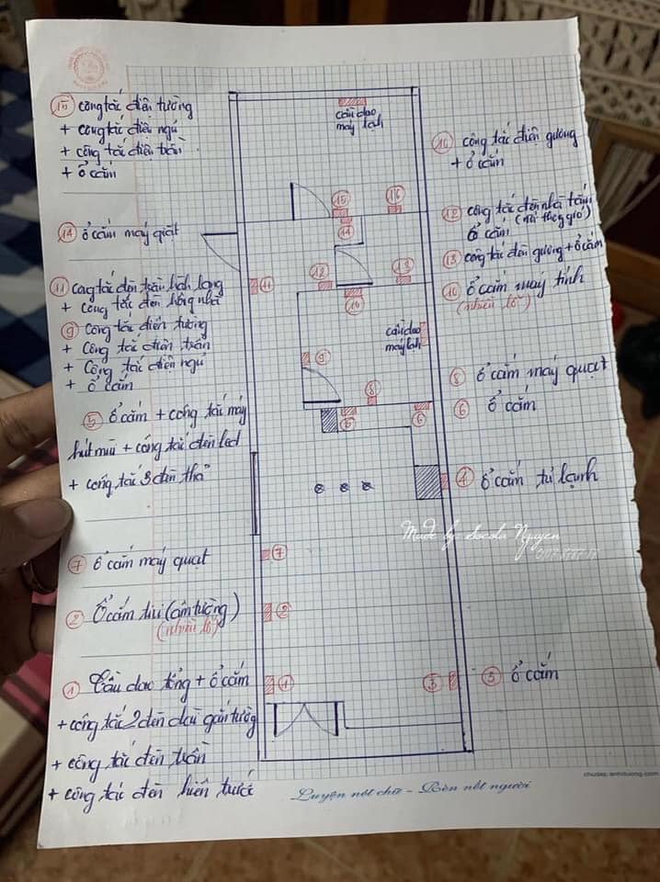 ⑮ công tắc điện tường
+ công tắc điện ngủ
+ công tắc điện trần
+ ổ cắm
⑭ ổ cắm máy giặt
⑪ công tắc đèn trần hành lang
+ công tắc đèn hông nhà
⑨ công tắc điện tường
+ công tắc điện trần
+ công tắc điện ngủ
+ ổ cắm
⑤ ổ cắm + công tắc máy
hút mùi + công tắc đèn led
+ công tắc 3 đèn thả
⑦ ổ cắm máy quạt
② Ổ cắm tivi (âm tường)
(nhiều lỗ)
① Cầu dao tổng + ổ cắm
+ công tắc 2 đèn gắn tường
+ công tắc đèn trần
+ công tắc đèn hiên trước
cầu dao
máy lạnh
⑮
⑯
⑭
⑪
⑫
⑬
⑩
cầu dao
máy lạnh
⑨
⑧
⑤
⑥
⑦
②
①
③
⑯ công tắc điện gương
+ ổ cắm
⑫ công tắc đèn nhà tắm
ổ cắm
⑬ công tắc đèn gương + ổ cắm
⑩ ổ cắm máy tính
(nhiều lỗ)
⑧ ổ cắm máy quạt
⑥ ổ cắm
④ ổ cắm tủ lạnh
Made by Socola Nguyen
③ ổ cắm
Luyện nét chữ - Rèn nết người